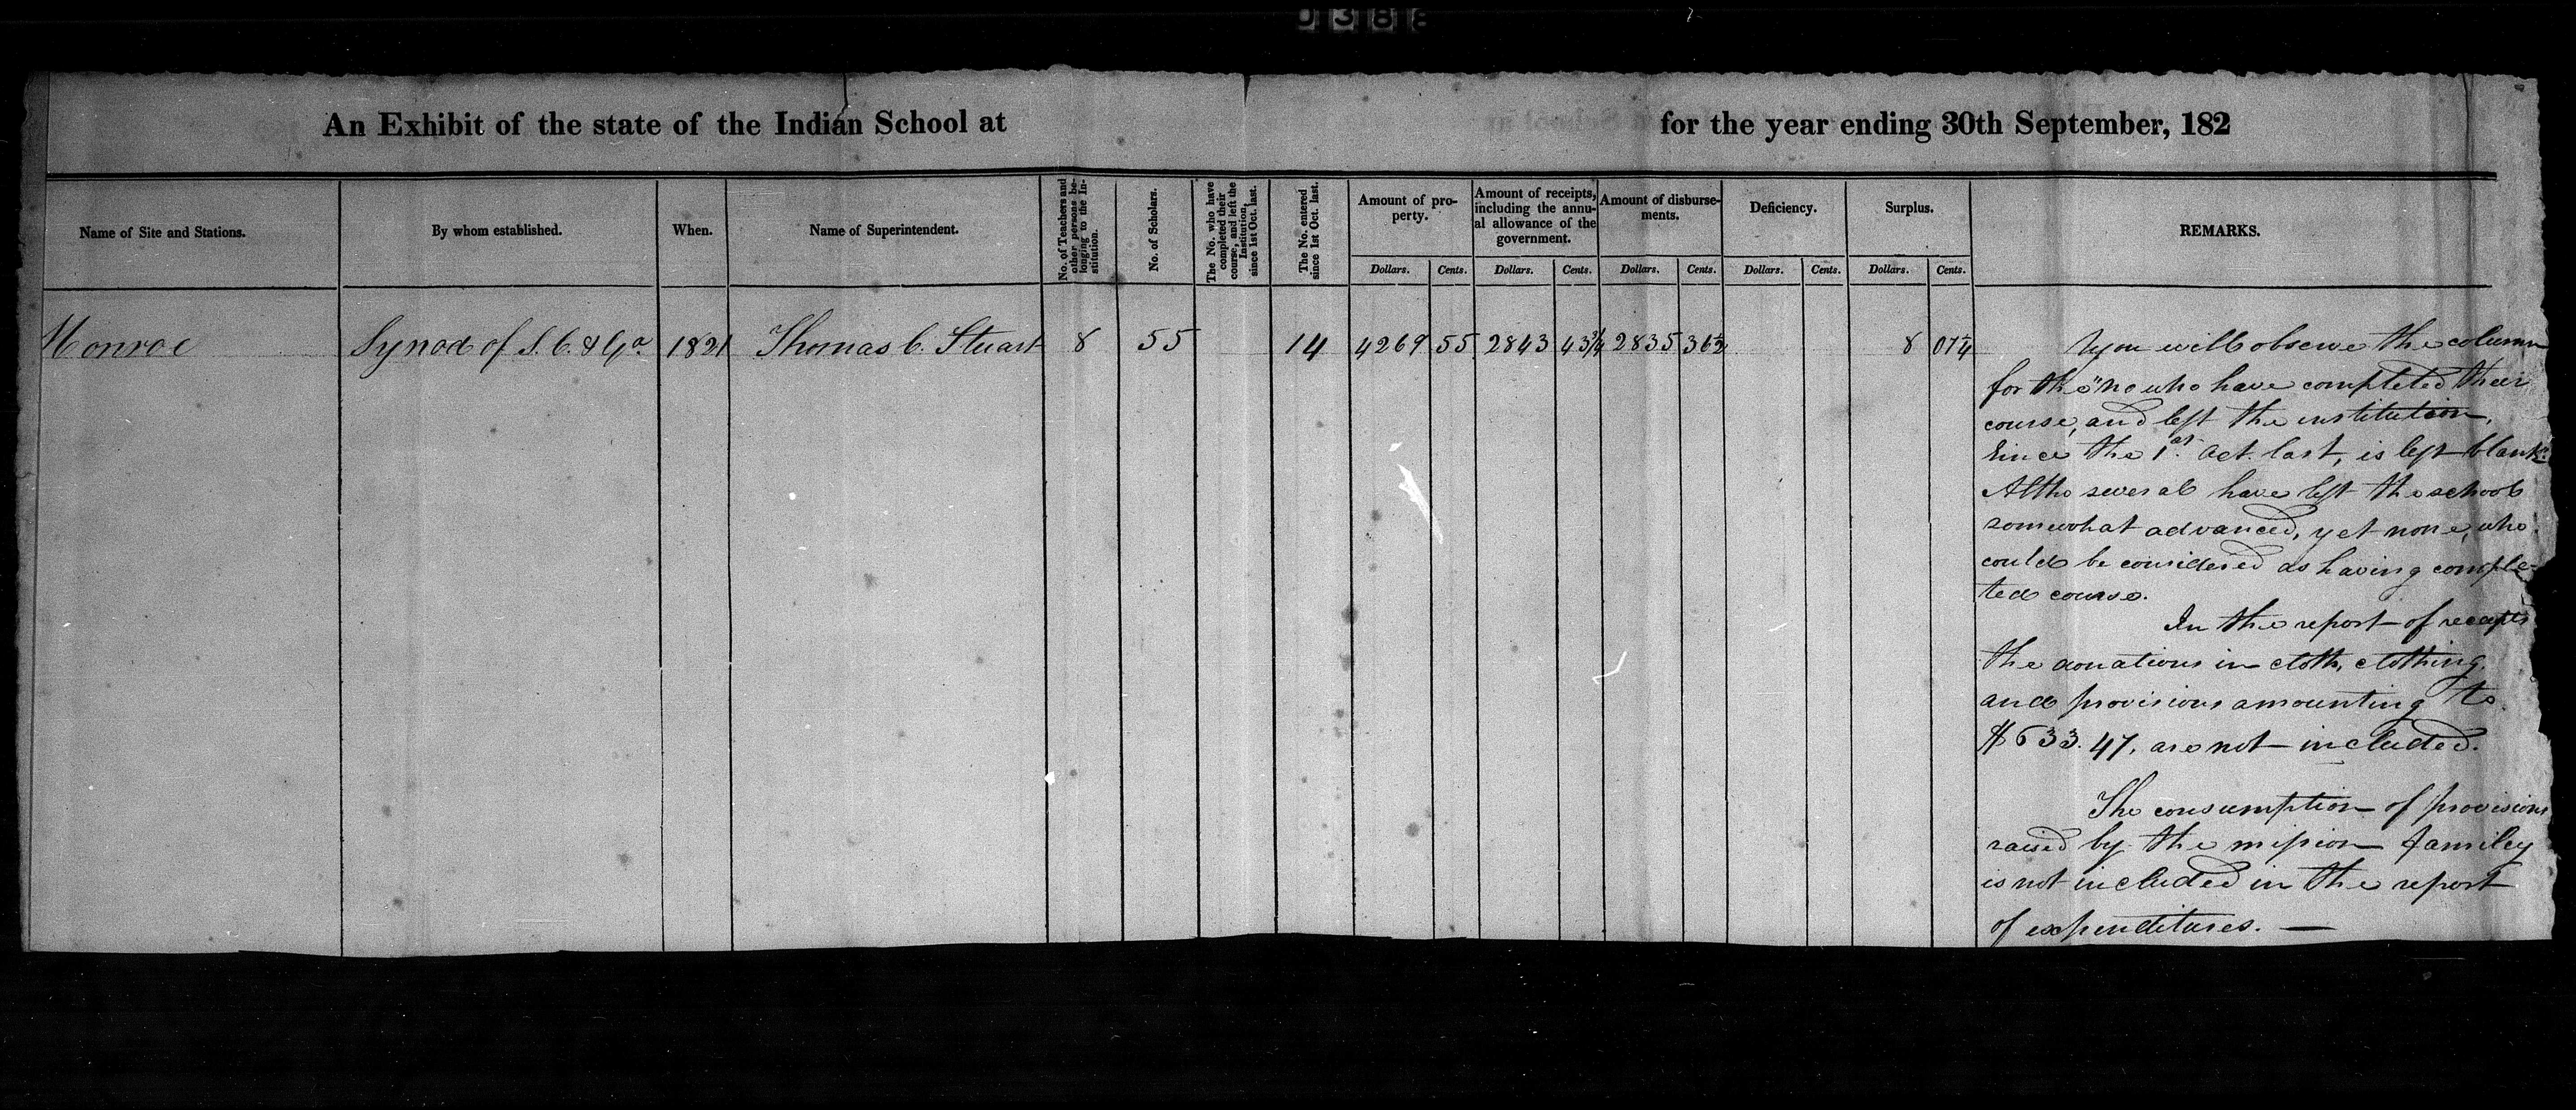 0388
An Exhibit of the state of the Indian School at for the year ending 30th September, 182
Name of Site and Stations.
By whom established.
When.
Name of Superintendent.
No. of Teachers and
other persons be-
longing to the In-
stitution.
No. of Scholars.
The No. who have
completed their
course, and left the
Institution,
since 1st Oct. last.
The No. entered
since 1st Oct. last.
Amount of pro-
perty.
Dollars. Cents.
Amount of receipts,
including the annu-
al allowance of the
government.
Dollars. Cents.
Amount of disburse-
ments.
Dollars. Cents.
Deficiency.
Dollars. Cents.
Surplus.
Dollars. Cents.
REMARKS.
Monroe Synod of S. C. & Ga. 1821 Thomas C. Stuart 8 55 14 4269 55 2843 43¾ 2835 36½ 8 07¼
You will observe the column
for the "no who have completed their
course, and left the institution,
since the 1st. Oct. last, is left blank".
Altho several have left the school
somewhat advanced, yet none, who
could be considered as having comple-
ted course.
In the report of receipts
the donations in cloth, clothing,
and provisions amounting to
$633.47, are not included.
The consumption of provisions
raised by the mission family
is not included in the report
of expenditures. —